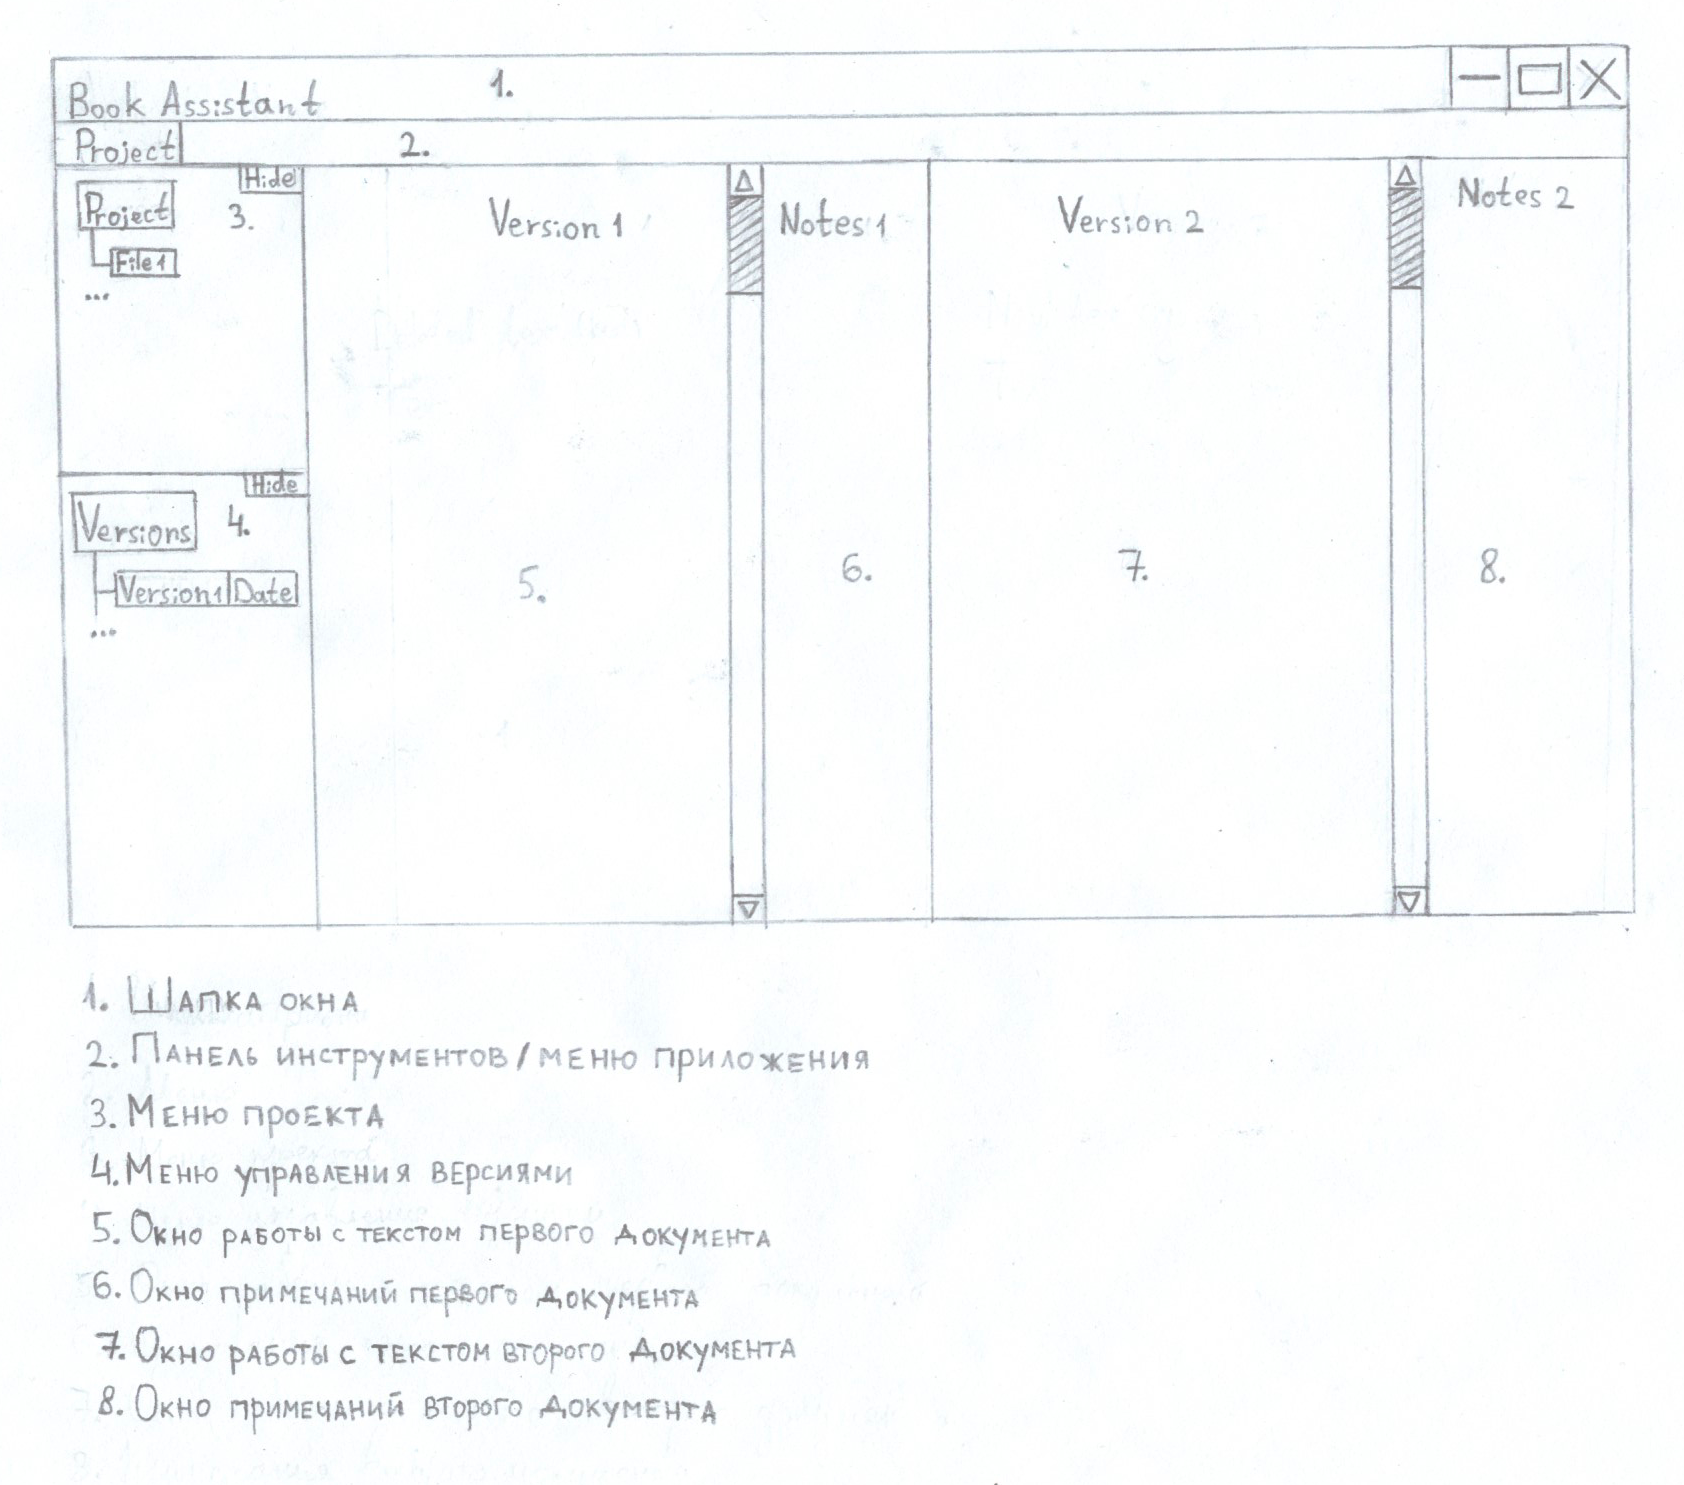 1.
Book Assistant
Project
2.
Hide
Project
3.
File1
...
Hide
Versions
4.
Version1 Date
...
Version 1
5.
Notes 1
6.
Version 2
7.
Notes 2
8.
1. Шапка окна
2. Панель инструментов/меню приложения
3. Меню проекта
4. Меню управления версиями
5. Окно работы с текстом первого документа
6. Окно примечаний первого документа
7. Окно работы с текстом второго документа
8. Окно примечаний второго документа